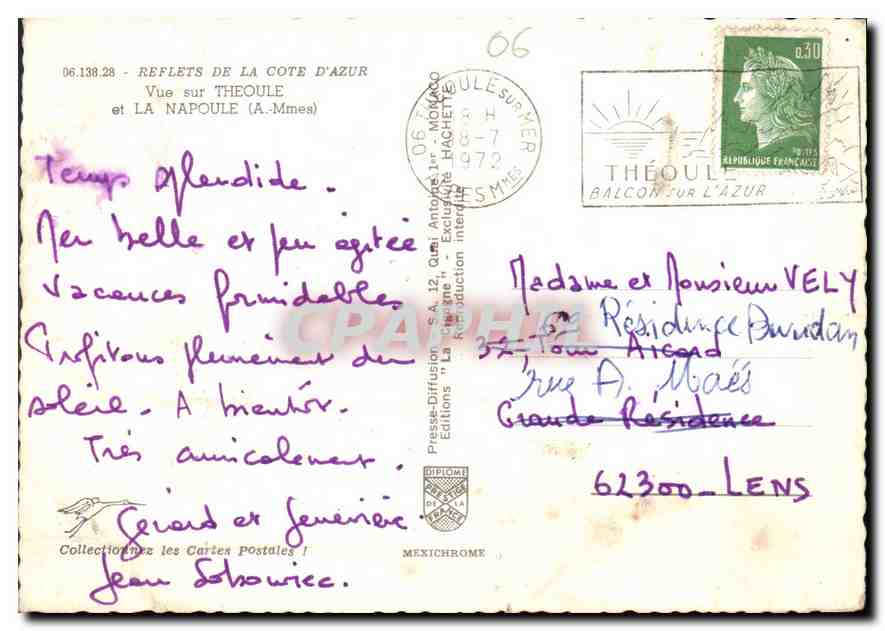 06
06.138.28 - REFLETS DE LA COTE D'AZUR
Vue sur THEOULE
et LA NAPOULE (A.-Mmes)
Temps splendide.
Mer belle et peu agitée
Vacances formidables
Profitons pleinement du
soleil. A bientôt.
Très amicalement.
Gérard et Geneviève.
Jean
Collectionnez les Cartes Postales !
Presse-Diffusion S.A. 12, Quai Antoine 1er - MONACO
Editions "La Cigogne" - Exclusivité HACHETTE
Reproduction interdite
DIPLOME
PRESTIGE
DE LA
FRANCE
MEXICHROME
06 THEOULE SUR MER
8-7
1972
THÉOULE
BALCON SUR L'AZUR
0,30
POSTES
RÉPUBLIQUE FRANÇAISE
Madame et Monsieur VELY
Résidence Buridan
32 Aicard
rue A. Maës
Grande Résidence
62300 - LENS
CPAPHIL